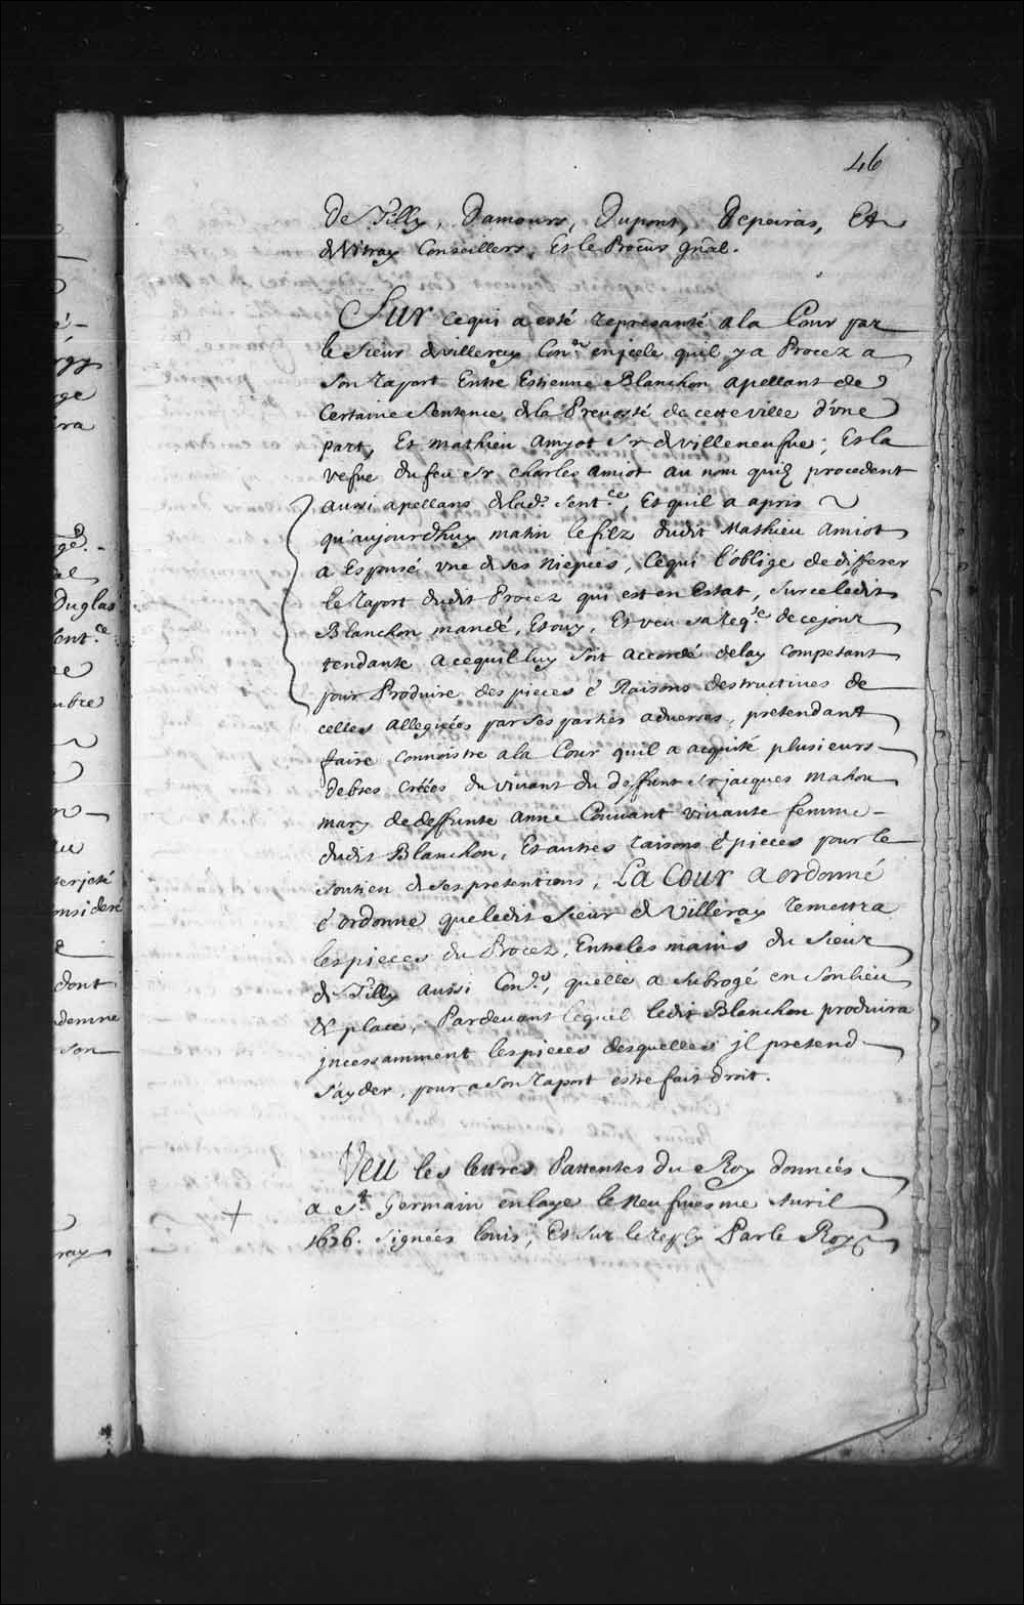 46
De Tilly, Damours, Dupont, Depeiras, Et
de Vitray Conseillers, Et le Procur gnal.
Sur ce qui a esté representé a la Cour par
le Sieur de Villeray Coner en jcele quil y a Procez a
son raport Entre Estienne Blanchon apellant de
Certaine Sentence de la Prevosté de cette ville d'vne
part, Et Mathieu Amyot Sr de villeneufue, Et la
vefue du feu Sr Charles Amiot au nom quilz procedent
aussi apellans de lade. Sentce, Et quil a apris
qu'aujourdhuy matin le filz dudit Mathieu Amiot
a Espousé vne de ses Niepces, Ce qui l'oblige de differer
le raport dudit Procez qui est en Estat, Sur ce ledit
Blanchon mandé, Et ouy, Et veu sa reqte de ce jour
tendante a ce quil luy soit accordé delay competant
pour Produire des pieces & Raisons destructiues de
celles alleguées par ses parties aduerses, pretendant
faire connoistre a la Cour quil a acquité plusieurs
debtes créées du viuant du deffunt Sr jacques Mahou
mary de deffunte Anne Conuant viuante femme
dudit Blanchon, Et autres raisons & pieces pour le
soutien de ses pretentions, La Cour a ordonné
& ordonne que ledit Sieur de Villeray remettra
les pieces du Procez, Entre les mains du Sieur
de Tilly aussi Coner, quelle a subrogé en son lieu
& place, Pardeuant lequel ledit Blanchon produira
jncessamment les pieces desquelles jl pretend
s'ayder, pour a son raport estre fait droit.
Veu les lettres Pattentes du Roy données
+ a St. Germain en laye le Neufuiesme Auril
1676. signées louis, Et sur le reply Par le Roy